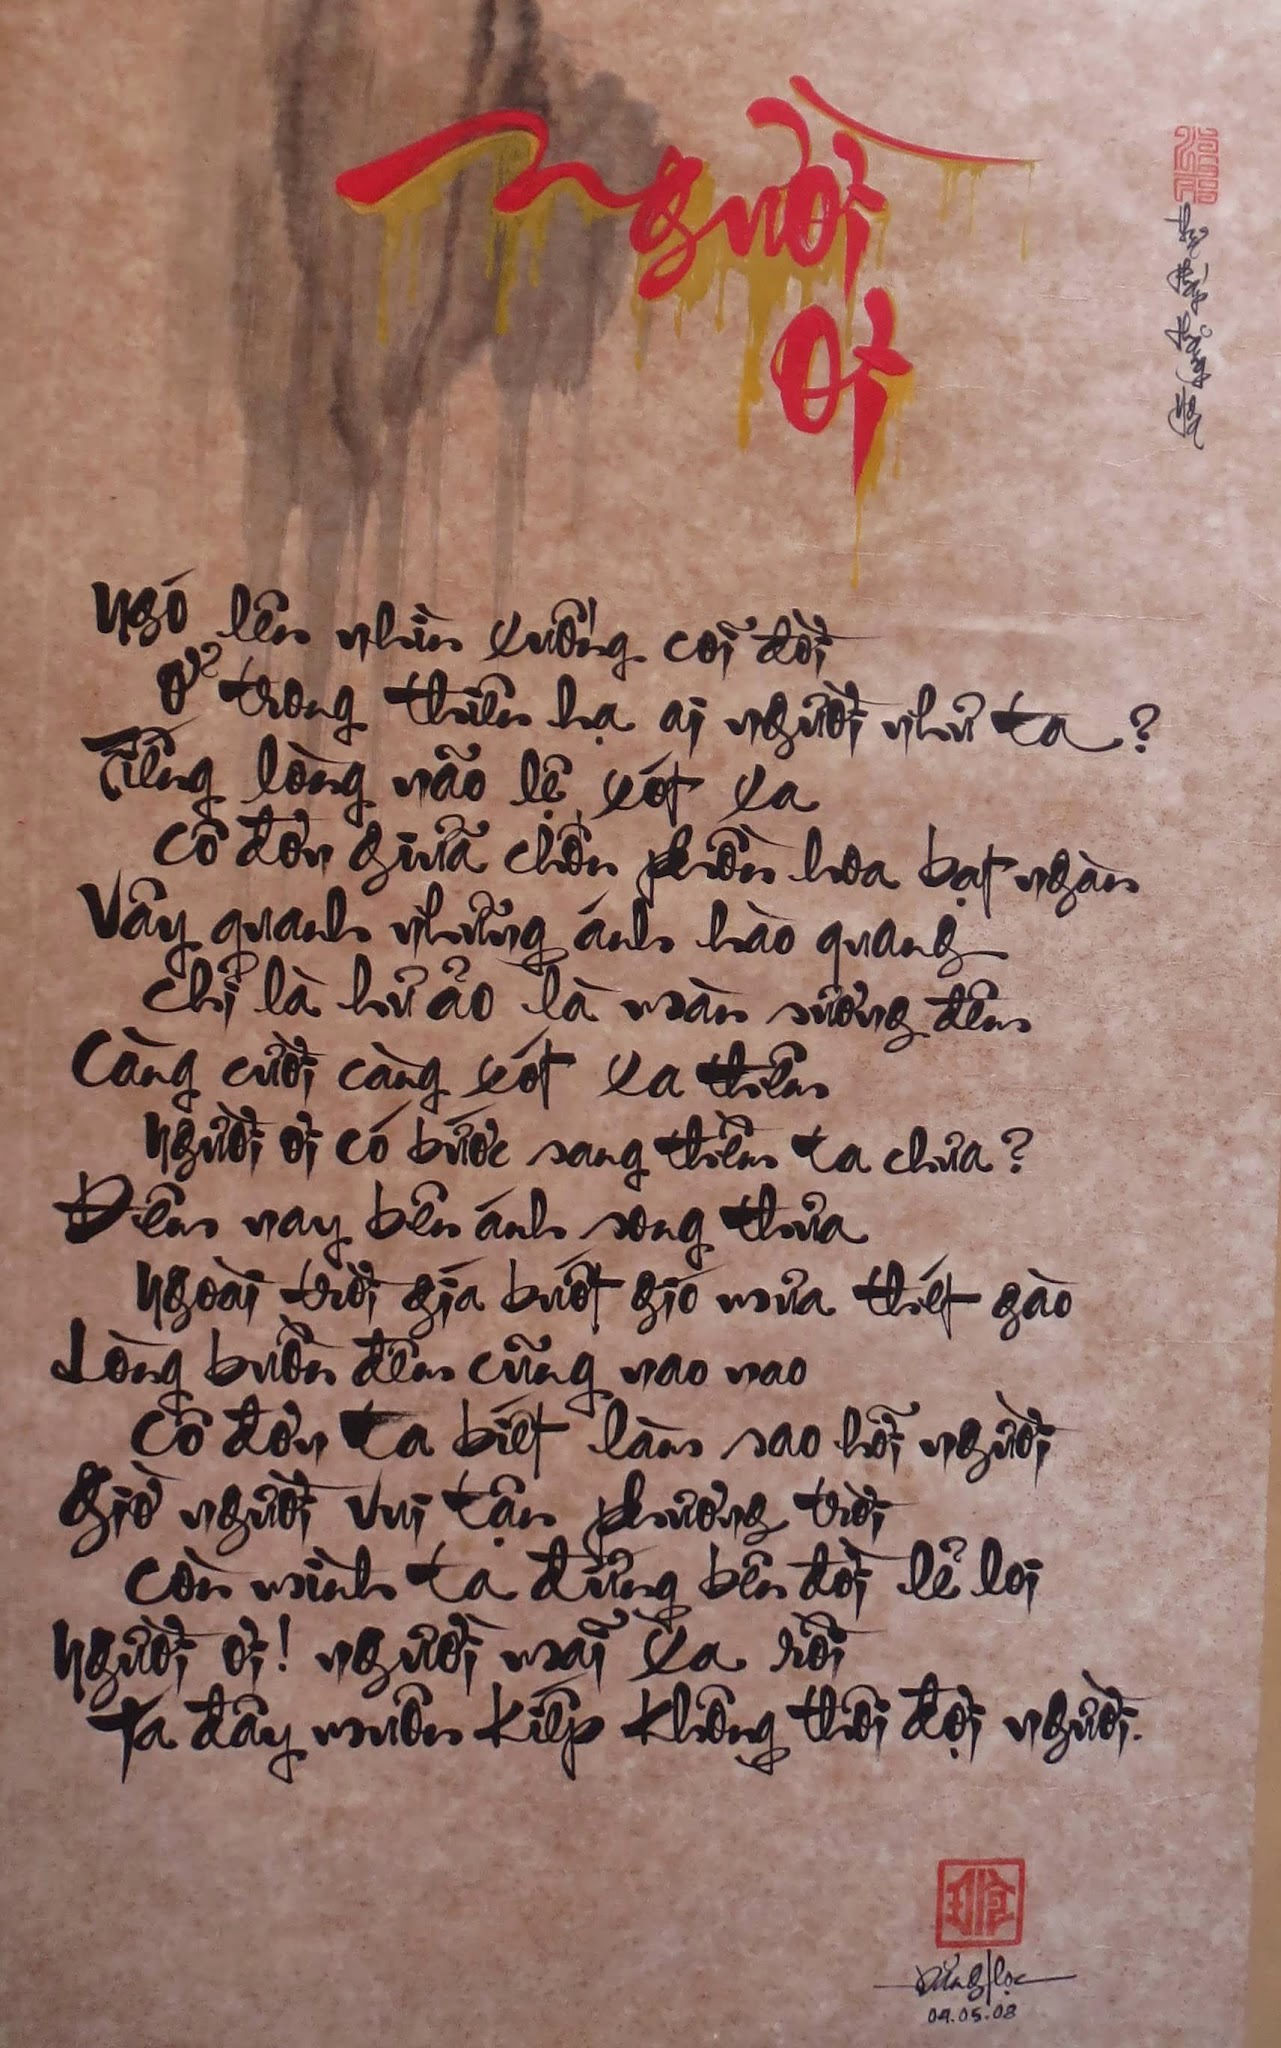 Người
ơi
Ngó lên nhìn xuống cõi đời
Ở trong thiên hạ ai người như ta?
Tiếng lòng não lệ xót xa
Cô đơn giữa chốn phồn hoa bạt ngàn
Vây quanh những ánh hào quang
Chỉ là hư ảo là màn sương đêm
Càng cười càng xót xa thêm
Người ơi có bước sang thềm ta chưa?
Đêm nay bên ánh song thưa
Ngoài trời giá buốt gió mưa thét gào
Lòng buồn đêm cũng nao nao
Cô đơn ta biết làm sao hỡi người
Giờ người vui tận phương trời
Còn mình ta đứng bên đời lẻ loi
Người ơi! người mãi xa rồi
Ta đây muôn kiếp không thôi đợi người.
04.05.08